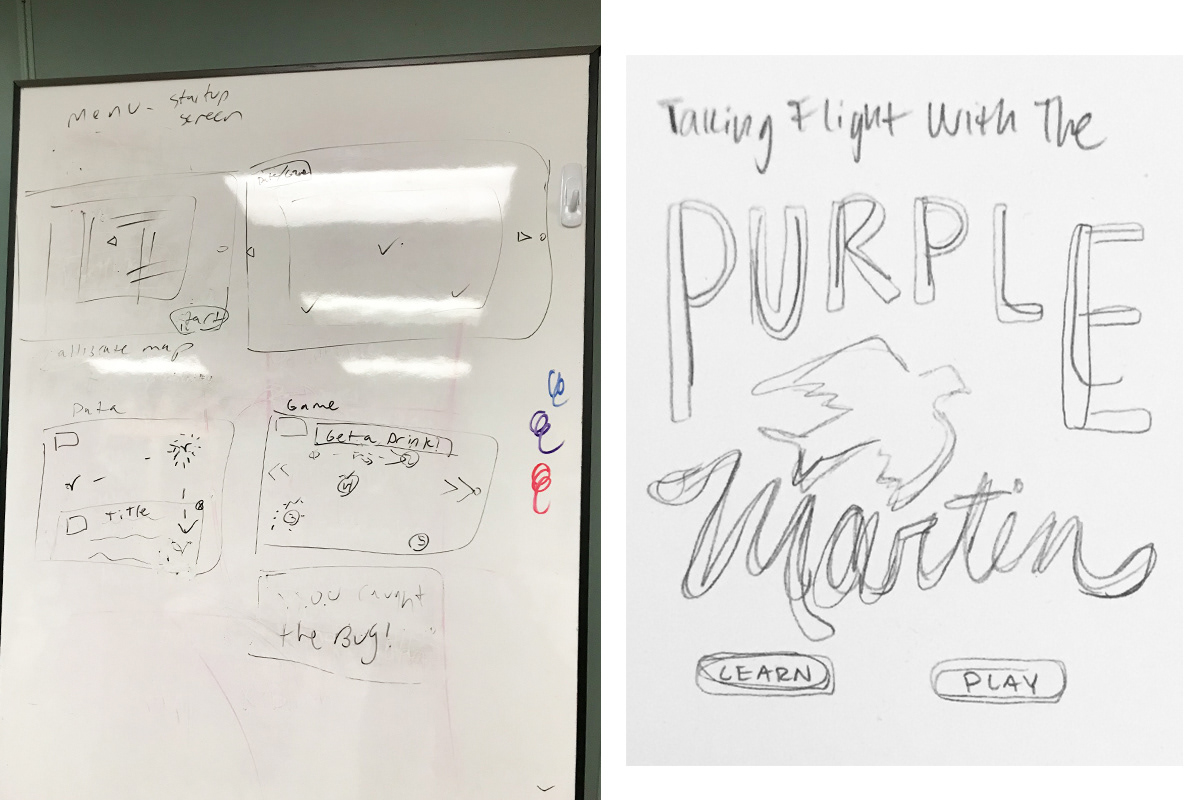 Menu - startup
screen
Start
map
Data
Game
Get a Drink!
Title
3
you caught
the Bug!
Taking Flight With The
PURPLE
Martin
LEARN
PLAY